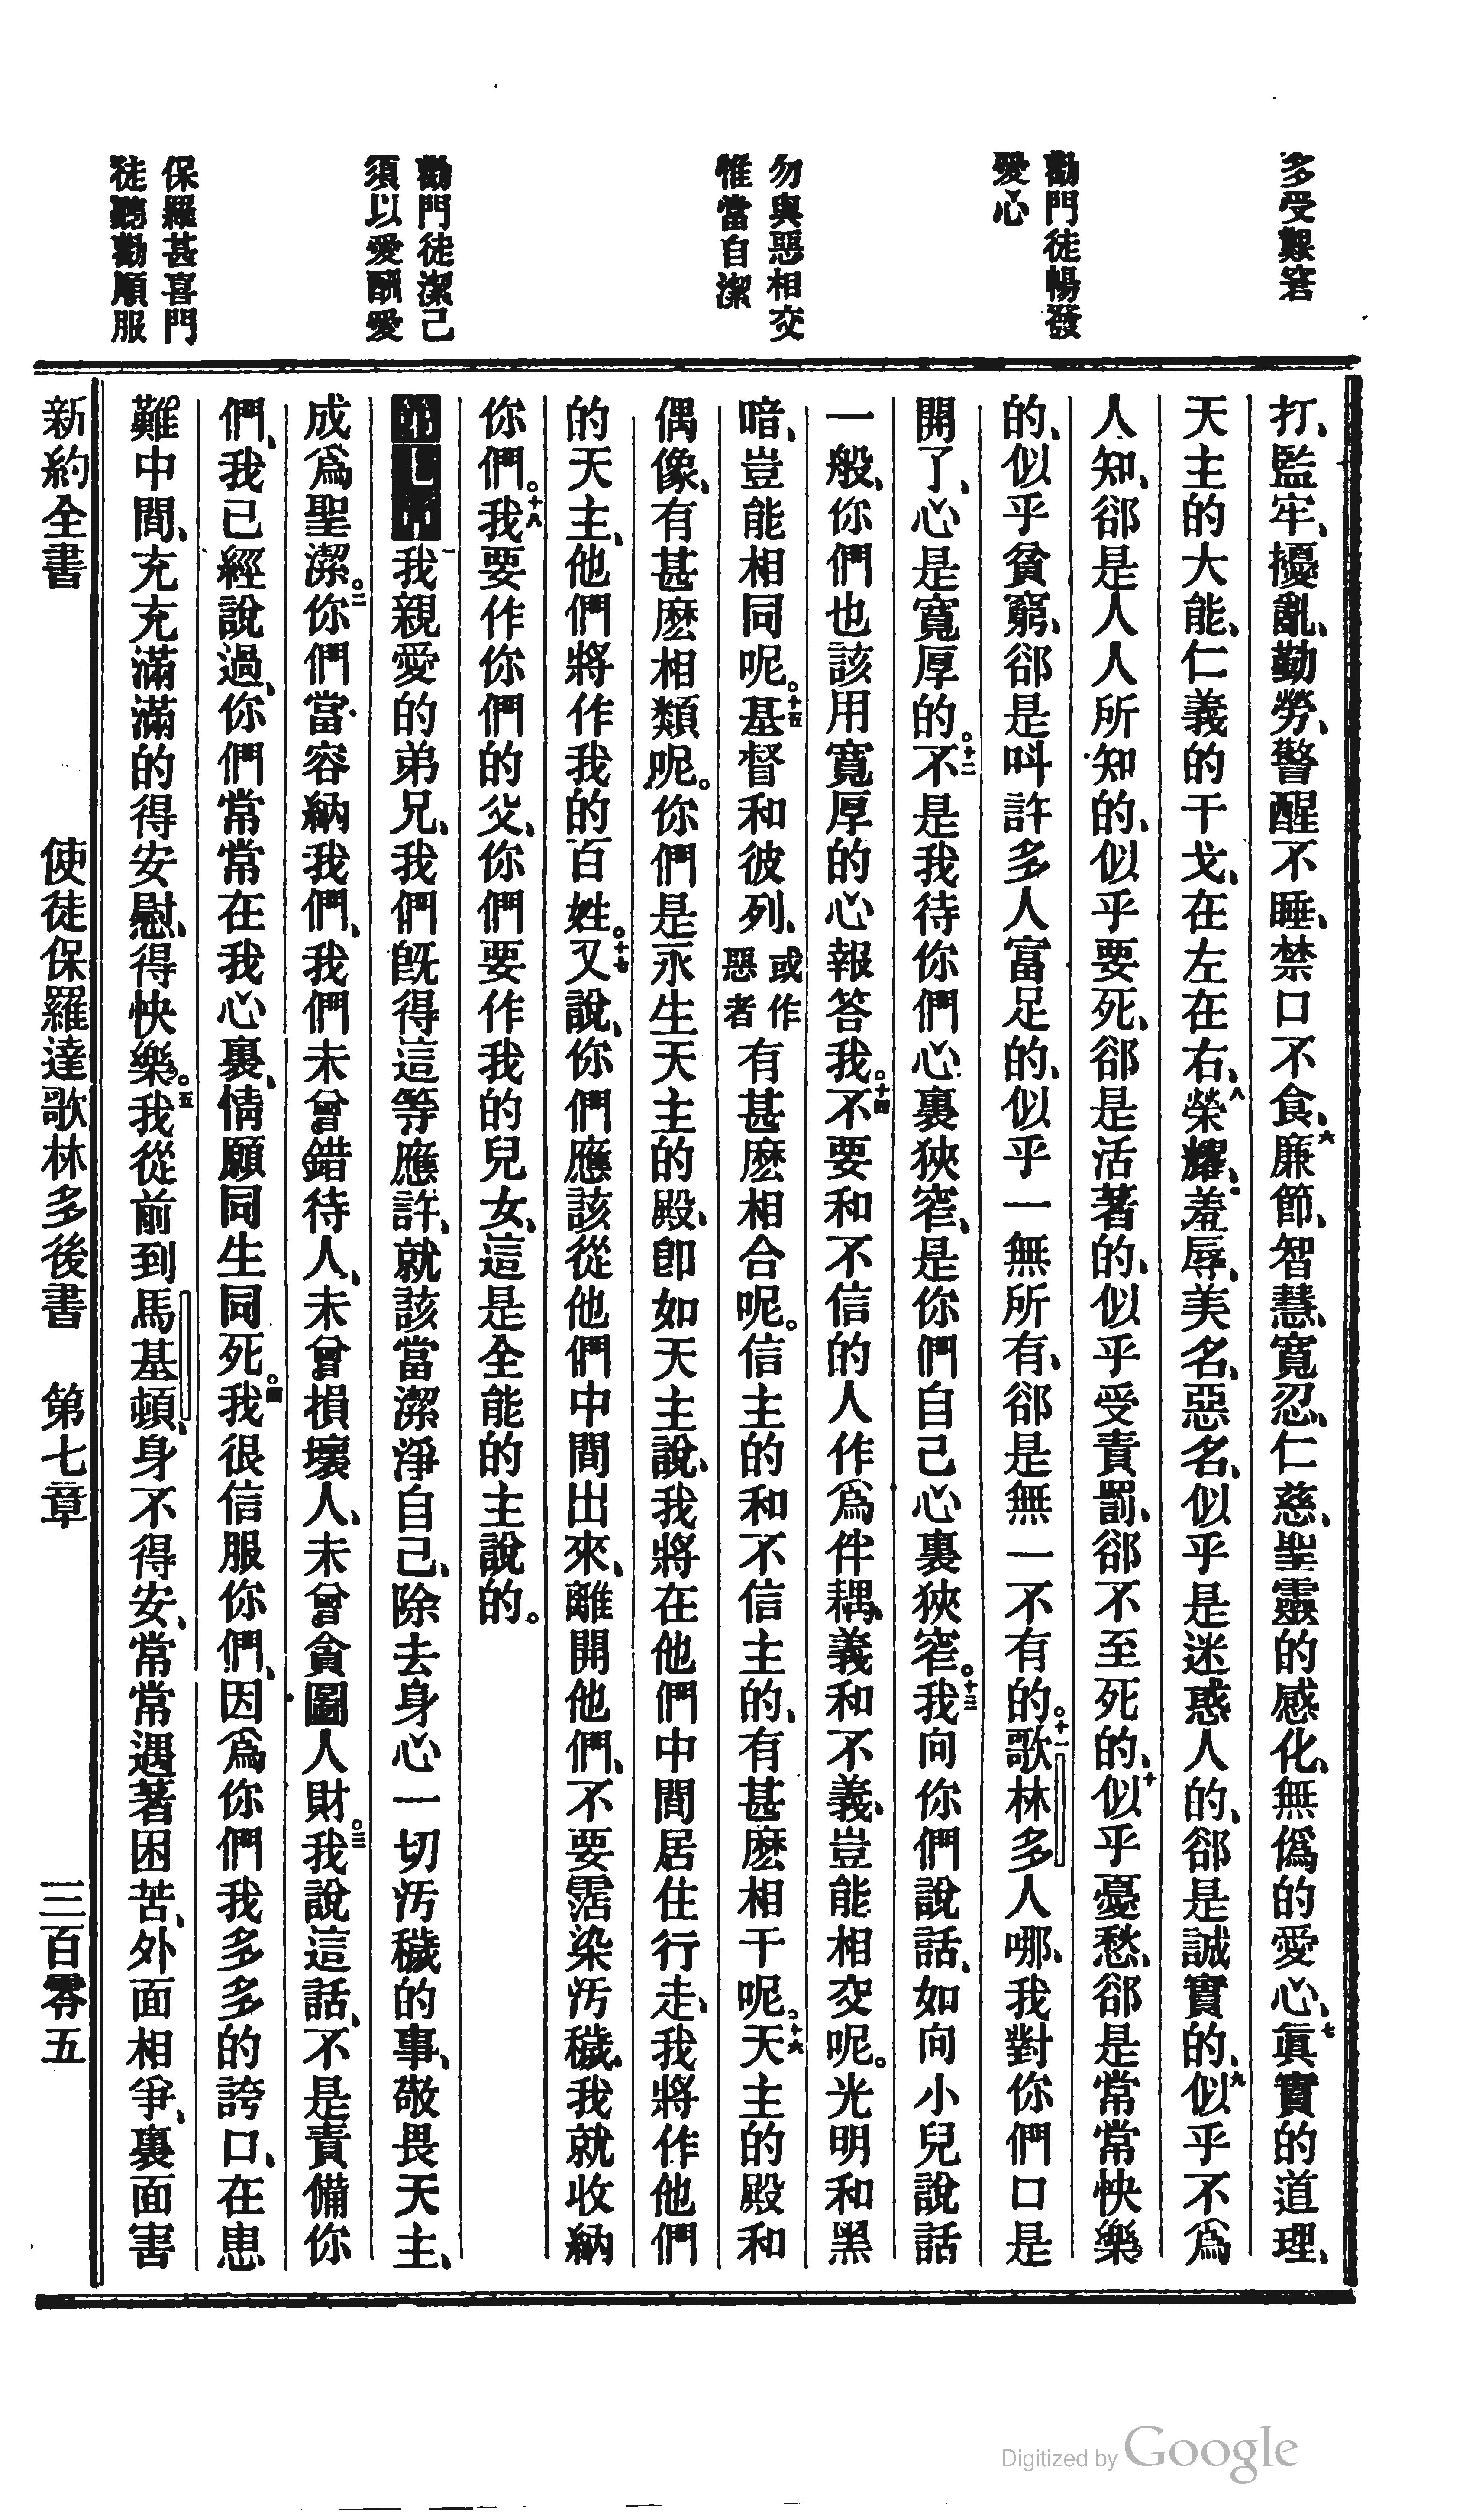 多受艱窘
勸門徒暢發
愛心
勿與惡相交
惟當自潔
勸門徒潔己
須以愛酬愛
保羅甚喜門
徒聽勸順服
打、監牢、擾亂、勤勞、警醒不睡、禁口不食、六廉節、智慧、寬忍、仁慈、聖靈的感化、無僞的愛心、七眞實的道理、
天主的大能、仁義的干戈、在左在右、八榮耀、羞辱、美名、惡名、似乎是迷惑人的、卻是誠實的、九似乎不爲
人知、卻是人人所知的、似乎要死、卻是活著的、似乎受責罰、卻不至死的、十似乎憂愁、卻是常常快樂
的、似乎貧窮、卻是呌許多人富足的、似乎一無所有、卻是無一不有的。十一歌林多人哪、我對你們口是
開了、心是寬厚的。十二不是我待你們心裏狹窄、是你們自己心裏狹窄。十三我向你們說話、如向小兒說話
一般、你們也該用寬厚的心報答我。十四不要和不信的人作爲伴耦、義和不義、豈能相交呢。光明和黑
暗、豈能相同呢。十五基督和彼列、或作惡者有甚麽相合呢。信主的和不信主的、有甚麽相干呢。十六天主的殿和
偶像、有甚麽相類呢。你們是永生天主的殿、卽如天主說、我將在他們中間居住行走、我將作他們
的天主、他們將作我的百姓。十七又說、你們應該從他們中間出來、離開他們、不要霑染汚穢、我就收納
你們。十八我要作你們的父、你們要作我的兒女、這是全能的主說的。
第七章一我親愛的弟兄、我們旣得這等應許、就該當潔淨自己、除去身心一切汚穢的事、敬畏天主、
成爲聖潔。二你們當容納我們、我們未曾錯待人、未曾損壞人、未曾貪圖人財。三我說這話、不是責備你
們、我已經說過、你們常常在我心裏、情願同生同死。四我很信服你們、因爲你們我多多的誇口、在患
難中間、充充滿滿的得安慰、得快樂。五我從前到馬基頓、身不得安、常常遇著困苦、外面相爭、裏面害
新約全書　使徒保羅達歌林多後書　第七章　三百零五
Digitized by Google